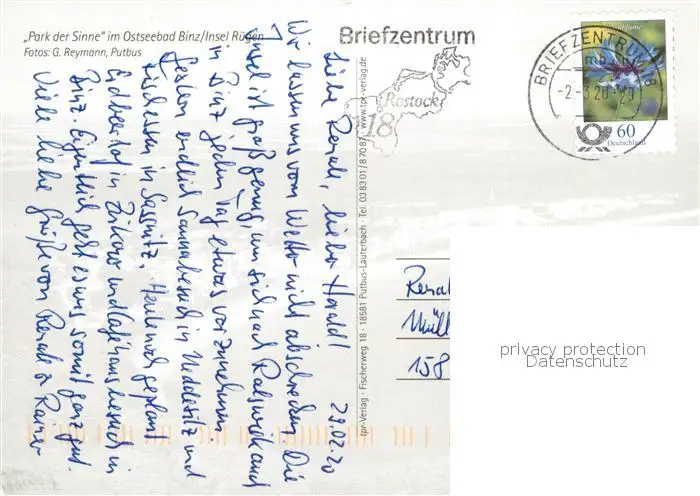 „Park der Sinne" im Ostseebad Binz/Insel Rügen
Fotos: G. Reymann, Putbus
Briefzentrum
Rostock
18
BRIEFZENTRUM 18
mb
-2.-3.20-
60
Deutschland
29.2.20
Liebe Renate, lieber Harald!
Wir lassen uns vom Wetter nicht abschrecken. Die
Insel ist groß genug, um sich nach Ralswiek und
in Binz jeden Tag etwas vorzunehmen.
Gestern endlich Sonne in und
Fischessen in Sassnitz. Heute noch geplant
Erdbeerhof in Zirkow und Kaffeehausbesuch in
Binz. Eigentlich geht es uns somit ganz gut.
Viele liebe Grüße von Renate & Rainer
tpr-Verlag · Fischerweg 18 · 18581 Putbus-Lauterbach · Tel. 03 83 01 / 8 70 87 · www.tpr-verlag.de
Renat
Müll
158
privacy protection
Datenschutz